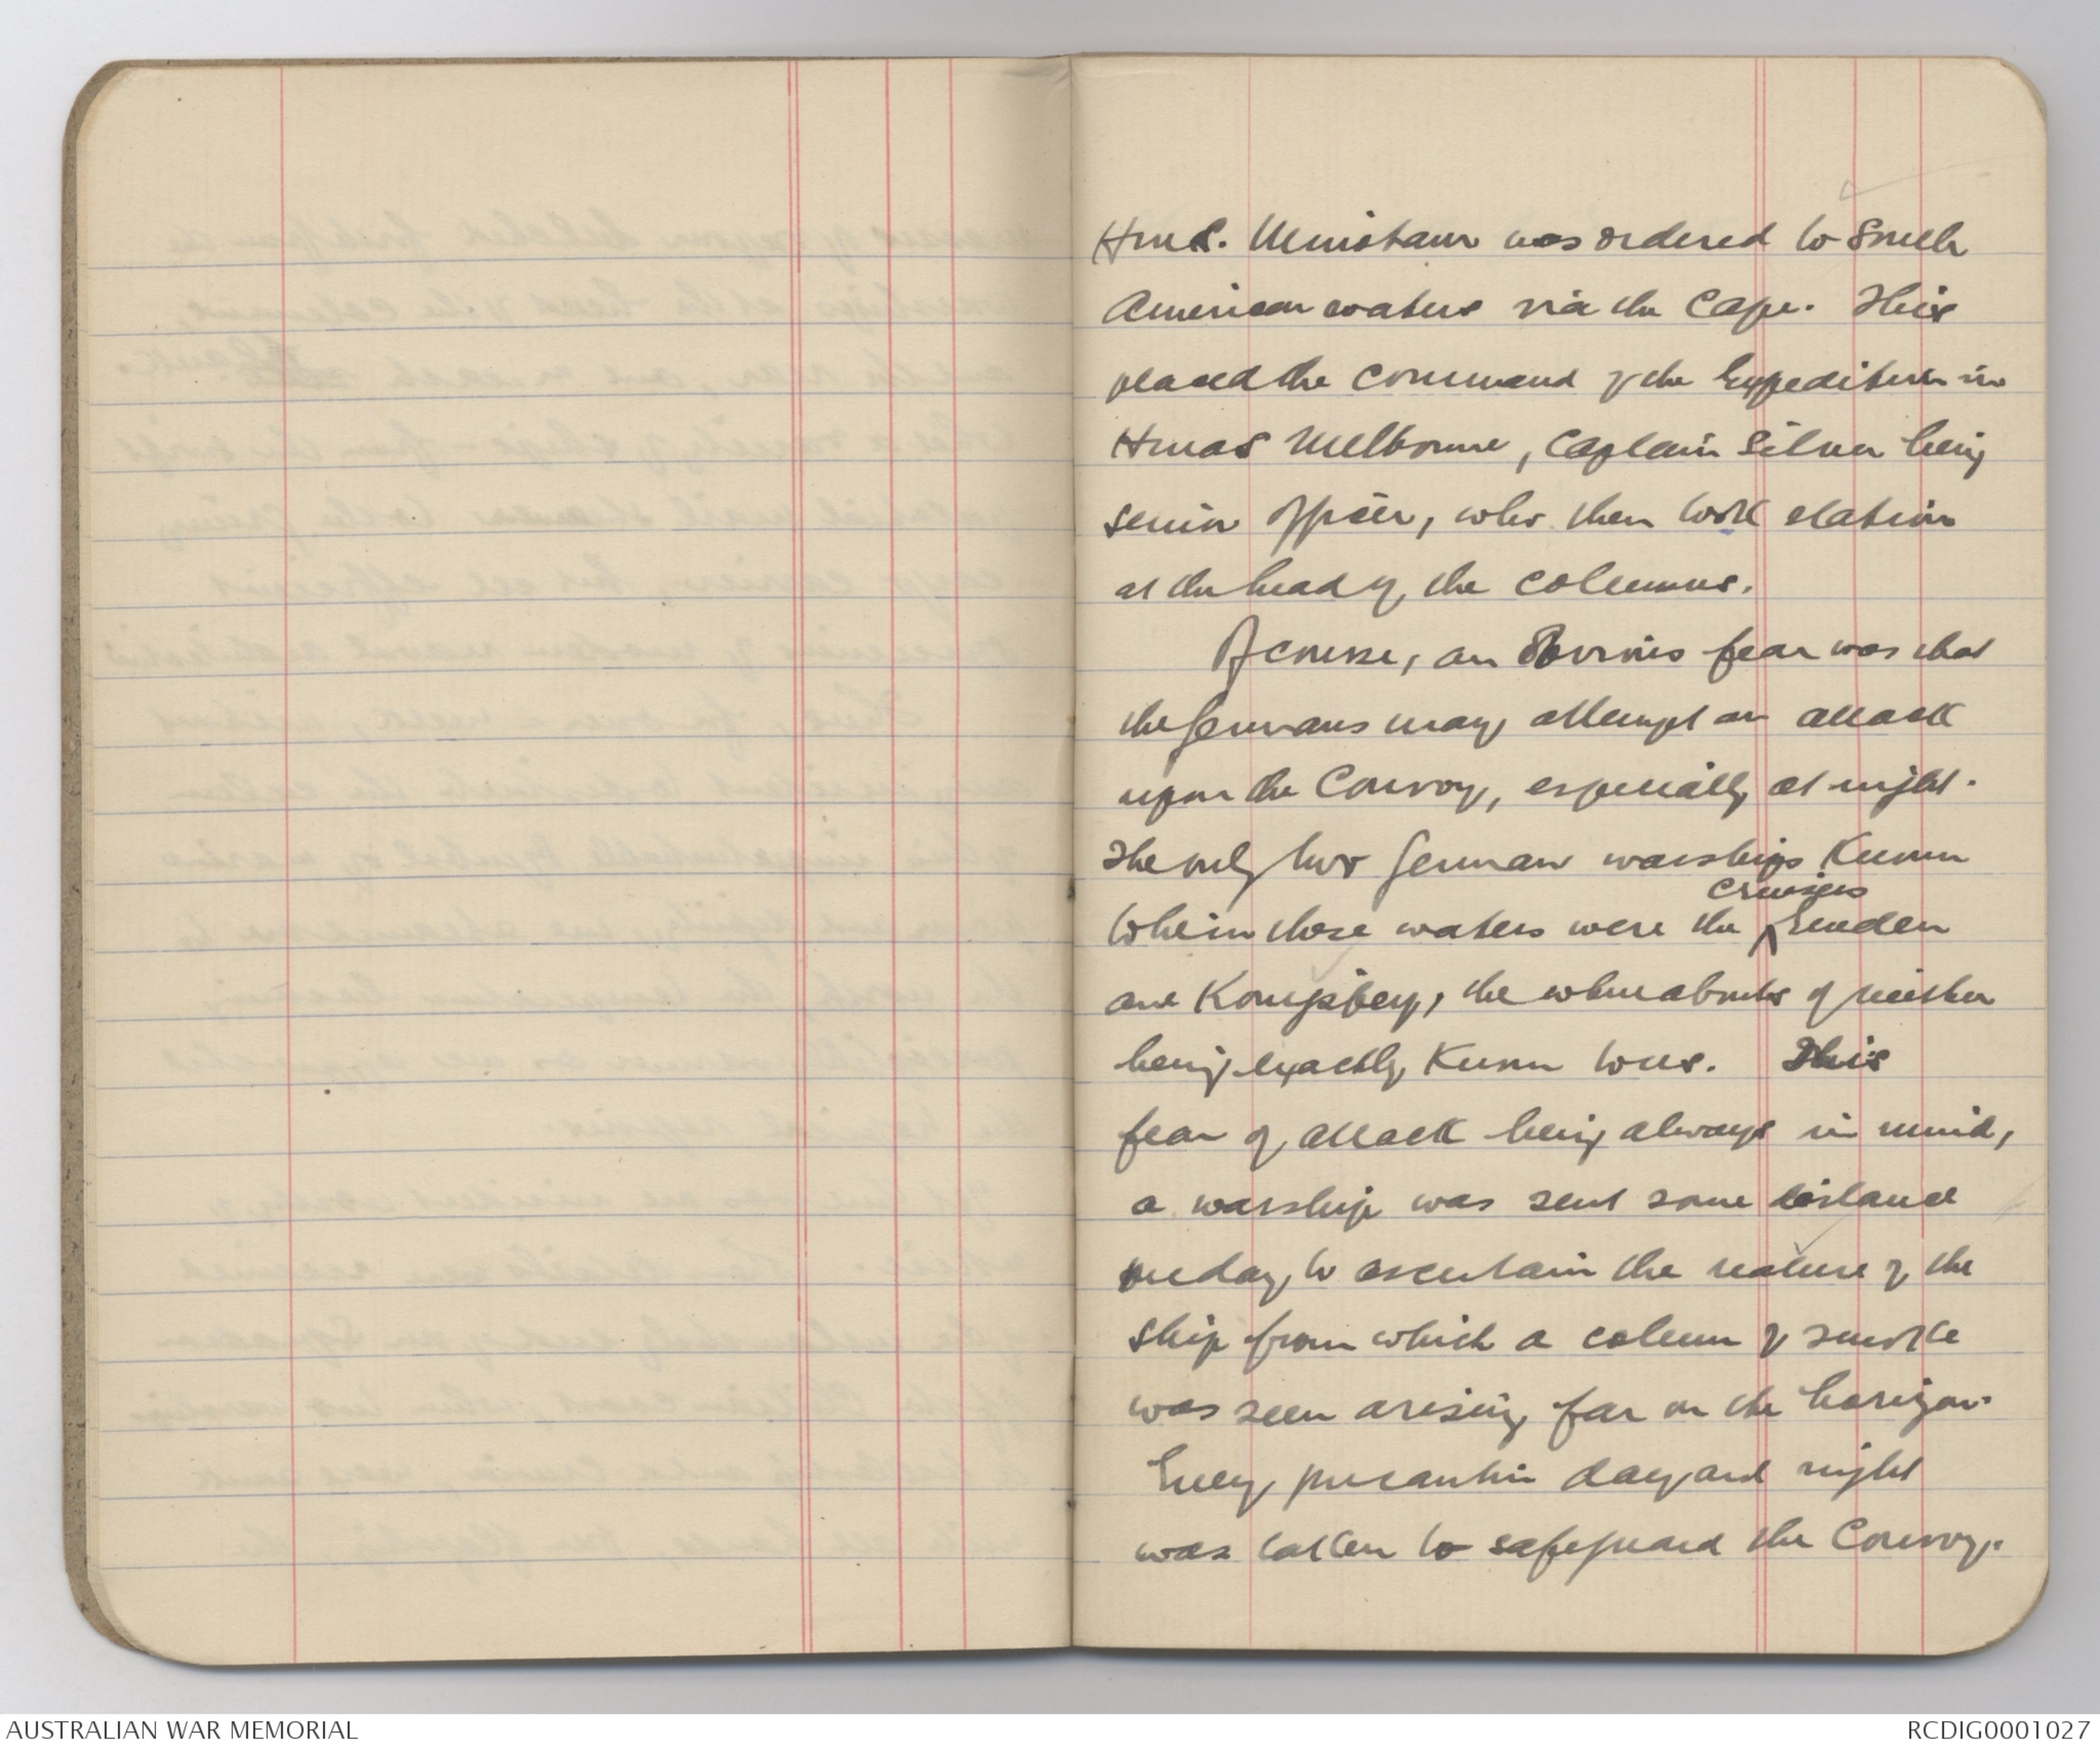 HMS. Minotaur was ordered to South
American waters via the Cape. This
placed the command of the Expedition in
HMAS Melbourne, Captain Silver being
senior officer, who then took station
at the head of the columns.
Of course, an obvious fear was that
the Germans may attempt an attack
upon the Convoy, especially at night.
The only two German warships known
cruisers
to be in those waters were the ^ Emden
and Konigsberg, the whereabouts of neither
being exactly known to us. This
fear of attack being always in mind,
a warship was sent some distance
one day, to ascertain the nature of the
ship from which a column of smoke
was seen arising far on the horizon.
Every precaution day and night
was taken to safeguard the Convoy.
AUSTRALIAN WAR MEMORIAL
RCDIG0001027